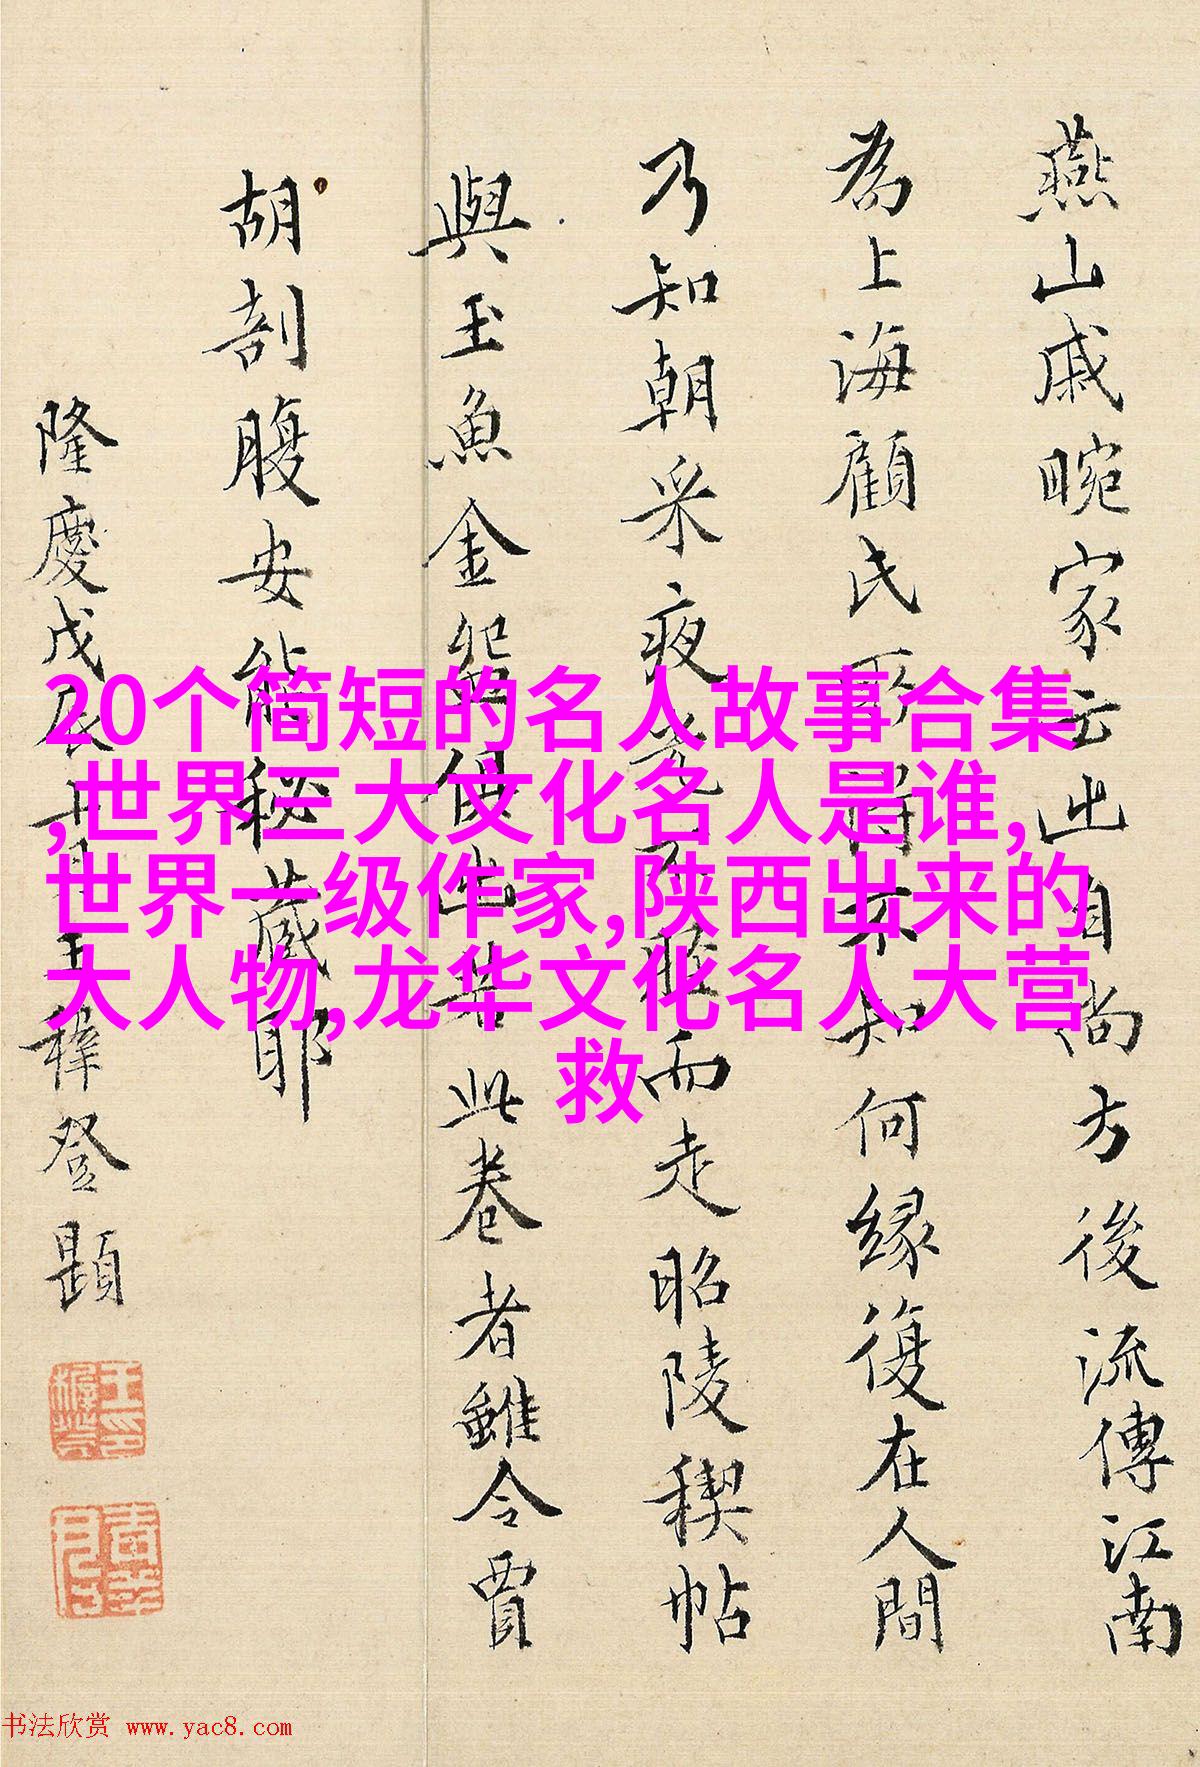 燕山戚畹家云出自尚方後流傳江南
為上海顧氏所得不知何緣復在人間
乃知朝采夜光不脛而走昭陵稧帖
與玉魚金盌俱出若此卷者雖令賈
胡剖腹安能秘藏耶
隆慶戊辰十月王穉登題
20个简短的名人故事合集
,世界三大文化名人是谁,
世界一级作家,陕西出来的
大人物,龙华文化名人大营
救
书法欣赏 www.yac8.com